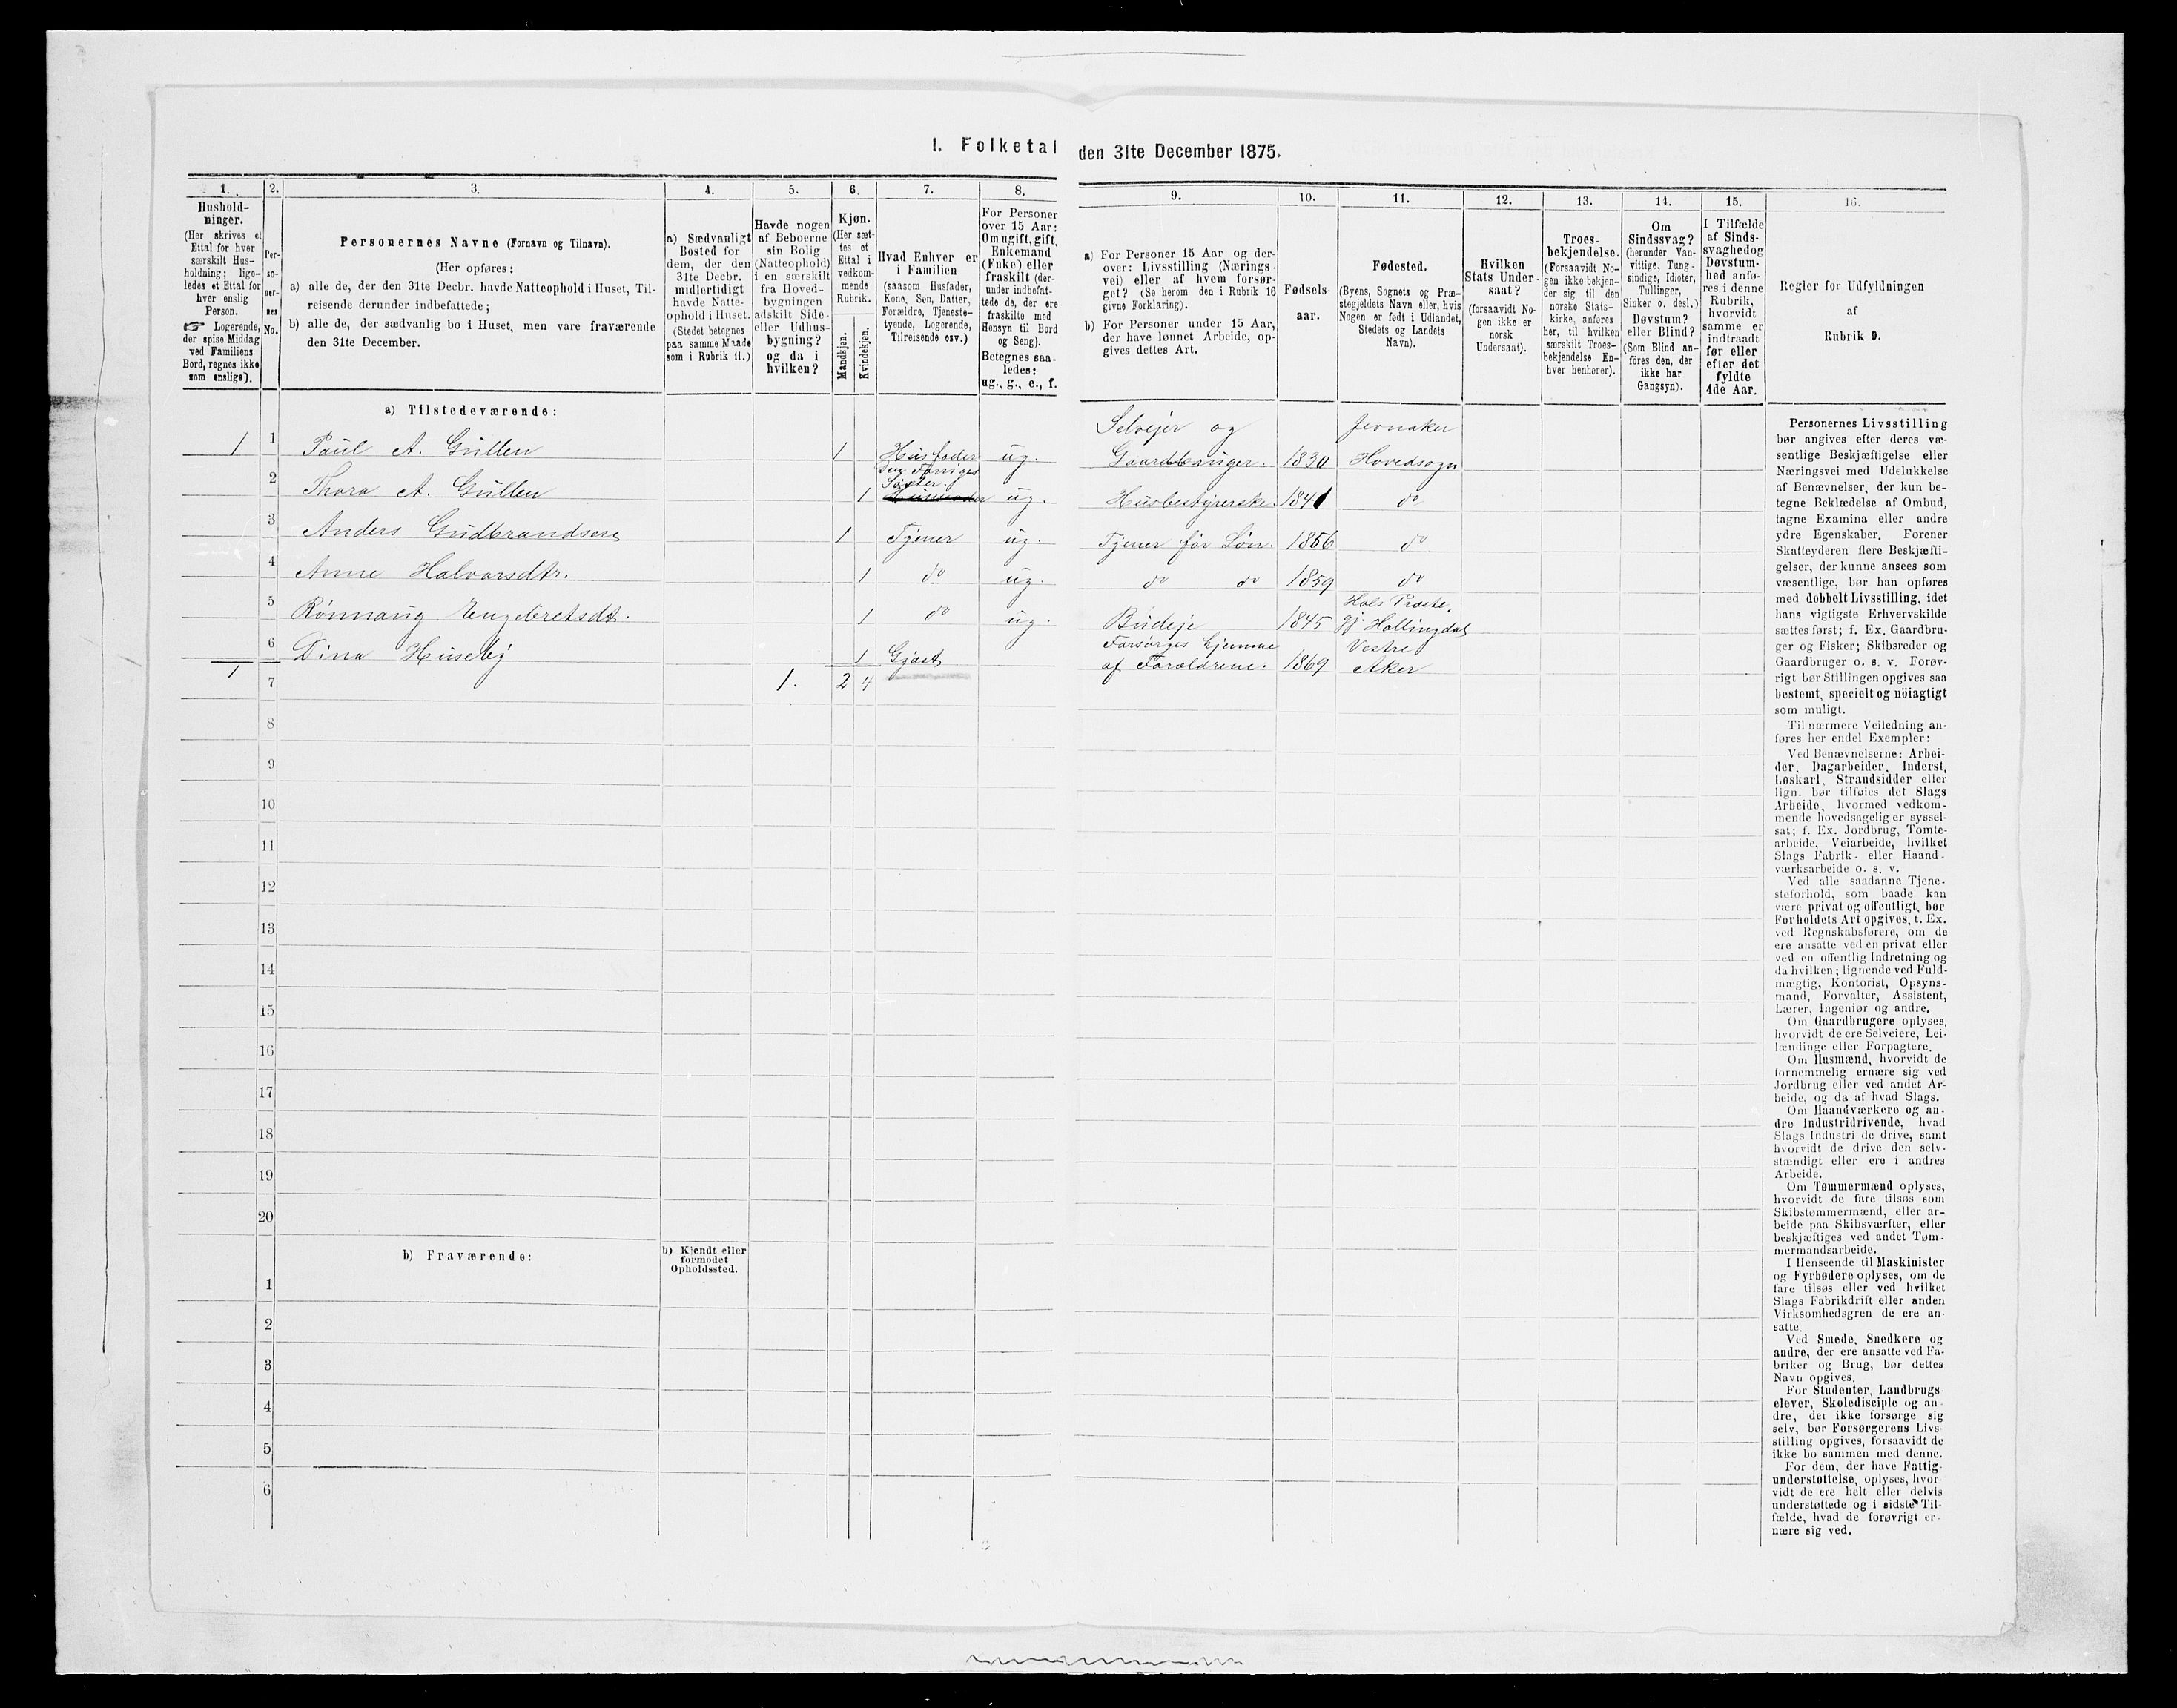 I. Folketal den 31te December 1875.
1. 2. 3. 4. 5. 6. 7. 8. 9. 10. 11. 12. 13. 14. 15. 16.
Hushold-
ninger.
(Her skrives et
Ettal for hver
særskilt Hus-
holdning; lige-
ledes et Ettal for
hver enslig
Person.
☞ Logerende,
der spise Middag
ved Familiens
Bord, regnes ikke
som enslige).
Per-
so-
ner-
nes
No.
Personernes Navne (Fornavn og Tilnavn).
(Her opføres:
a) alle de, der den 31te Decbr. havde Natteophold i Huset, Til-
reisende derunder indbefattede;
b) alle de, der sædvanlig bo i Huset, men vare fraværende
den 31te December.
a) Sædvanligt
Bosted for
dem, der den
31te Decbr.
midlertidigt
havde Natte-
ophold i Huset.
(Stedet betegnes
paa samme Maade
som i Rubrik 11.)
Havde nogen
af Beboerne
sin Bolig
(Natteophold)
i en særskilt
fra Hoved-
bygningen
adskilt Side-
eller Udhus-
bygning?
og da i
hvilken?
Kjøn.
(Her sæt-
tes et
Ettal i
vedkom-
mende
Rubrik.
Mandkjøn.
Kvindekjøn.
Hvad Enhver er
i Familien
(saasom Husfader,
Kone, Søn, Datter,
Forældre, Tjeneste-
tyende, Logerende,
Tilreisende osv.)
For Personer
over 15 Aar:
Om ugift, gift,
Enkemand
(Enke) eller
fraskilt (der-
under indbefat-
tede de, der ere
fraskilte med
Hensyn til Bord
og Seng).
Betegnes saa-
ledes:
ug., g., e., f.
a) For Personer 15 Aar og der-
over: Livsstilling (Nærings-
vei) eller af hvem forsør-
get? (Se herom den i Rubrik 16
givne Forklaring).
b) For Personer under 15 Aar,
der have lønnet Arbeide, op-
gives dettes Art.
Fødsels-
aar.
Fødested.
(Byens, Sognets og Præ-
stegjeldets Navn eller, hvis
Nogen er født i Udlandet,
Stedets og Landets
Navn).
Hvilken
Stats Under-
saat?
(forsaavidt No-
gen ikke er
norsk
Undersaat).
Troes-
bekjendelse.
(Forsaavidt No-
gen ikke bekjen-
der sig til den
norske Stats-
kirke, anføres
her, til hvilken
særskilt Troes-
bekjendelse En-
hver henhører).
Om
Sindssvag?
(herunder Van-
vittige, Tung-
sindige, Idioter,
Tullinger,
Sinker o. desl.)
Døvstum?
eller Blind?
(Som Blind an-
føres den, der
ikke har
Gangsyn).
I Tilfælde
af Sinds-
svaghed og
Døvstum-
hed anfø-
res i denne
Rubrik,
hvorvidt
samme er
indtraadt
før eller
efter det
fyldte
4de Aar.
Regler for Udfyldningen
af
Rubrik 9.
a) Tilstedeværende:
1 1 Paul A. Gullen 1 Husfader ug. Selvejer og Gaardbruger. 1830 Jevnaker Hovedsogn
2 Thora A. Gullen 1 Den Forriges Søster. ug. Husbestyrerske. 1841 do
3 Anders Gudbrandsen 1 Tjener ug. Tjener for Løn. 1856 do
4 Anne Halvorsdtr. 1 do ug. do do 1859 do
5 Rønnaug Engebretsdt. 1 do ug. Budeje 1845 Hols Præste. gj. Hallingdal
6 Dina Huseby 1 Gjæst Forsørges hjemme af Forældrene. 1869 Vestre Aker
1 7 1. 2 4
8
9
10
11
12
13
14
15
16
17
18
19
20
b) Fraværende:
b) Kjendt eller
formodet
Opholdssted.
1
2
3
4
5
6
Personernes Livsstilling
bør angives efter deres væ-
sentlige Beskjæftigelse eller
Næringsvei med Udelukkelse
af Benævnelser, der kun be-
tegne Beklædelse af Ombud,
tagne Examina eller andre
ydre Egenskaber. Forener
Skatteyderen flere Beskjæfti-
gelser, der kunne ansees som
væsentlige, bør han opføres
med dobbelt Livsstilling, idet
hans vigtigste Erhvervskilde
sættes først; f. Ex. Gaardbru-
ger og Fisker; Skibsreder og
Gaardbruger o. s. v. Forøv-
rigt bør Stillingen opgives saa
bestemt, specielt og nöiagtigt
som muligt.
Til nærmere Veiledning an-
føres her endel Exempler:
Ved Benævnelserne: Arbei-
der, Dagarbeider, Inderst,
Løskarl, Strandsidder eller
lign. bør tilføies det Slags
Arbeide, hvormed vedkom-
mende hovedsagelig er syssel-
sat; f. Ex. Jordbrug, Tomte-
arbeide, Veiarbeide, hvilket
Slags Fabrik- eller Haand-
værksarbeide o. s. v.
Ved alle saadanne Tjene-
steforhold, som baade kan
være privat og offentligt, bør
Forholdets Art opgives, t. Ex.
ved Regnskabsførere, om de
ere ansatte ved en privat eller
ved en offentlig Indretning og
da hvilken; lignende ved Fuld-
mægtig, Kontorist, Opsyns-
mand, Forvalter, Assistent,
Lærer, Ingeniør og andre.
Om Gaardbrugere oplyses,
hvorvidt de ere Selveiere, Lei-
lændinge eller Forpagtere.
Om Husmænd, hvorvidt de
fornemmelig ernære sig ved
Jordbrug eller ved andet Ar-
beide, og da af hvad Slags.
Om Haandværkere og an-
dre Industridrivende, hvad
Slags Industri de drive, samt
hvorvidt de drive den selv-
stændigt eller ere i andres
Arbeide.
Om Tømmermænd oplyses,
hvorvidt de fare tilsøs som
Skibstømmermænd, eller ar-
beide paa Skibsværfter, eller
beskjæftiges ved andet Tøm-
mermandsarbeide.
I Henseende til Maskinister
og Fyrbødere oplyses, om de
fare tilsøs eller ved hvilket
Slags Fabrikdrift eller anden
Virksomhedsgren de ere an-
satte.
Ved Smede, Snedkere og
andre, der ere ansatte ved Fa-
briker og Brug, bør dettes
Navn opgives.
For Studenter, Landbrugs-
elever, Skoledisciple og an-
dre, der ikke forsørge sig
selv, bør Forsørgerens Livs-
stilling opgives, forsaavidt de
ikke bo sammen med denne.
For dem, der have Fattig-
understøttelse, oplyses, hvor-
vidt de ere helt eller delvis
understøttede og i sidste Til-
fælde, hvad de forøvrigt er-
nære sig ved.